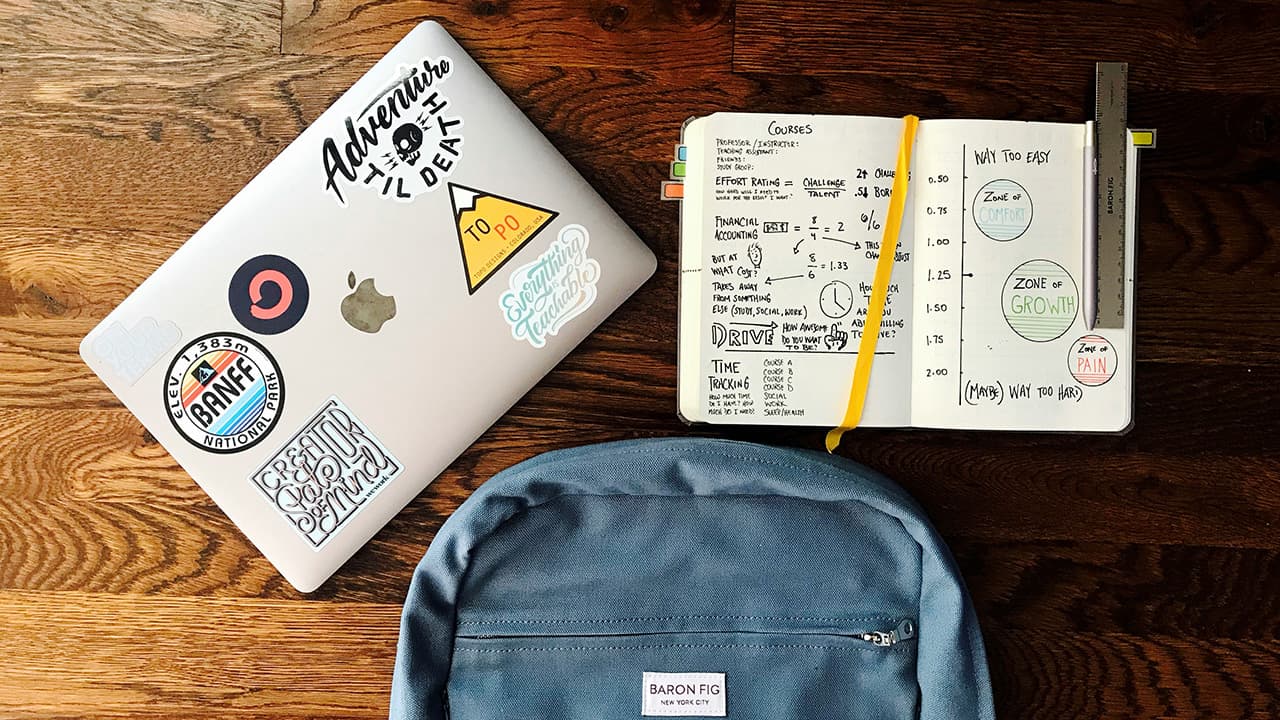 Adventure
'TIL DEATH
TO
PO
TOPO DESIGNS • COLORADO, USA
Everything
is
Teachable
ELEV. 1,383m
BANFF
NATIONAL PARK
CREATOR
State
OF Mind
wework
COURSES
PROFESSOR / INSTRUCTOR:
TEACHING ASSISTANT:
FRIENDS:
STUDY GROUP:
EFFORT RATING = CHALLENGE
TALENT
HOW HARD WILL I NEED TO
WORK FOR THE RESULT I WANT?
2↑
.5↓
FINANCIAL
ACCOUNTING = 8/4 = 2 6/6
BUT AT
WHAT COST?
8/6 = 1.33
THIS
TAKES AWAY
FROM SOMETHING
ELSE (STUDY, SOCIAL, WORK)
DRIVE
HOW AWESOME
DO YOU WANT
TO BE?
TIME
TRACKING
HOW MUCH TIME
DO I HAVE? HOW
MUCH DO I NEED?
COURSE A
COURSE B
COURSE C
COURSE D
SOCIAL
WORK
SLEEP/HEALTH
WAY TOO EASY
0.50
0.75
1.00
1.25
1.50
1.75
2.00
ZONE OF
COMFORT
ZONE OF
GROWTH
ZONE OF
PAIN
(MAYBE) WAY TOO HARD
BARON FIG
BARON FIG
NEW YORK CITY